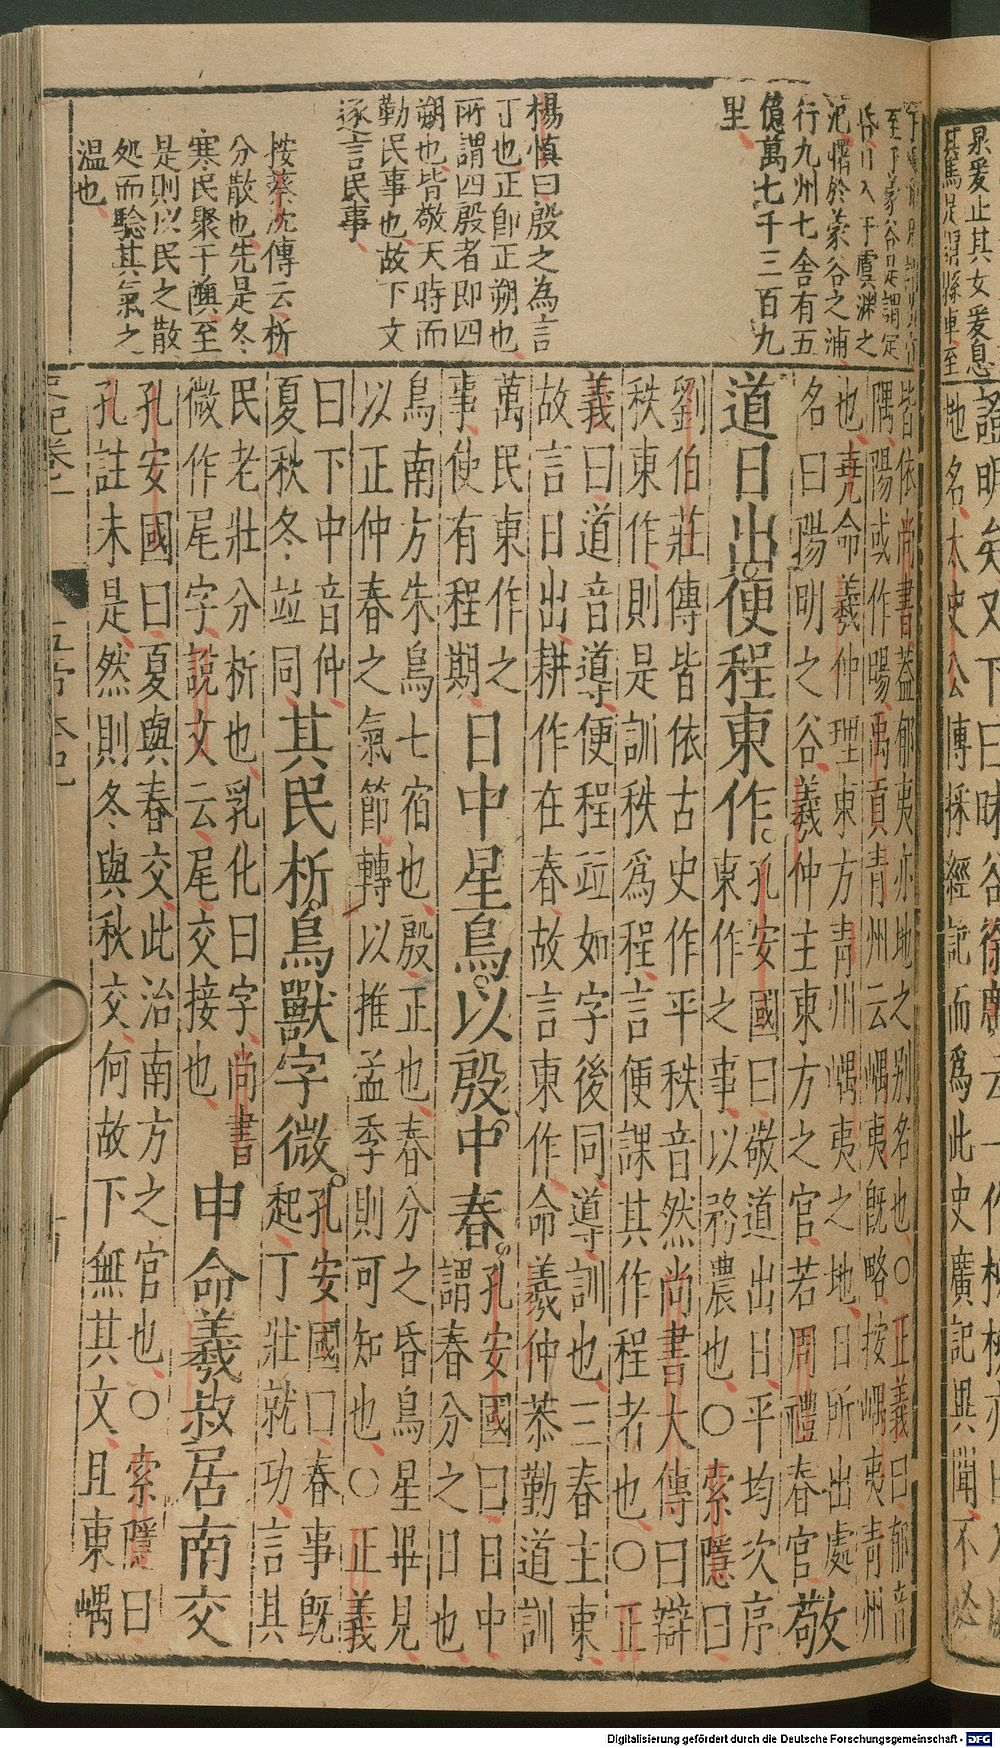 泉爰止其女爰息
其馬是謂縣車至
證明矣又下曰昧谷徐廣云一作柳柳亦日入
地名太史公博採經記而爲此史廣記異聞不必
至于蒙谷是謂定
昏日入于虞淵之
汜曙於蒙谷之浦
行九州七舍有五
億萬七千三百九
里
楊慎曰殷之為言
丁也正卽正朔也
所謂四殷者即四
朔也皆敬天時而
勤民事也故下文
逐言民事
按蔡沈傳云析
分散也先是冬
寒民聚于隩至
是則以民之散
処而驗其氣之
温也
皆依尚書葢郁夷亦地之别名也○正義曰郁音
隅陽或作暘禹貢青州云嵎夷既略按嵎夷青州
也堯命羲仲理東方青州嵎夷之地日所出處
名曰陽明之谷羲仲主東方之官若周禮春官
敬
道日出便程東作
孔安國曰敬道出日平均次序
東作之事以務農也○索隱曰
劉伯莊傳皆依古史作平秩音然尚書大傳曰辯
秩東作則是訓秩爲程言便課其作程者也○正
義曰道音導便程竝如字後同導訓也三春主東
故言日出耕作在春故言東作命羲仲恭勤道訓
萬民東作之
事使有程期
日中星鳥以殷中春
孔安國曰日中
謂春分之日也
鳥南方朱鳥七宿也殷正也春分之昏鳥星畢見
以正仲春之氣節轉以推孟季則可知也○正義
曰下中音仲
夏秋冬竝同
其民析鳥獸字微
孔安國曰春事既
起丁壯就功言其
民老壯分析也乳化曰字尚書
微作尾字說文云尾交接也
申命羲叔居南交
孔安國曰夏與春交此治南方之官也○索隱曰
孔註未是然則冬與秋交何故下無其文且東嵎
史記卷一
五帝本紀
Digitalisierung gefördert durch die Deutsche Forschungsgemeinschaft - DFG